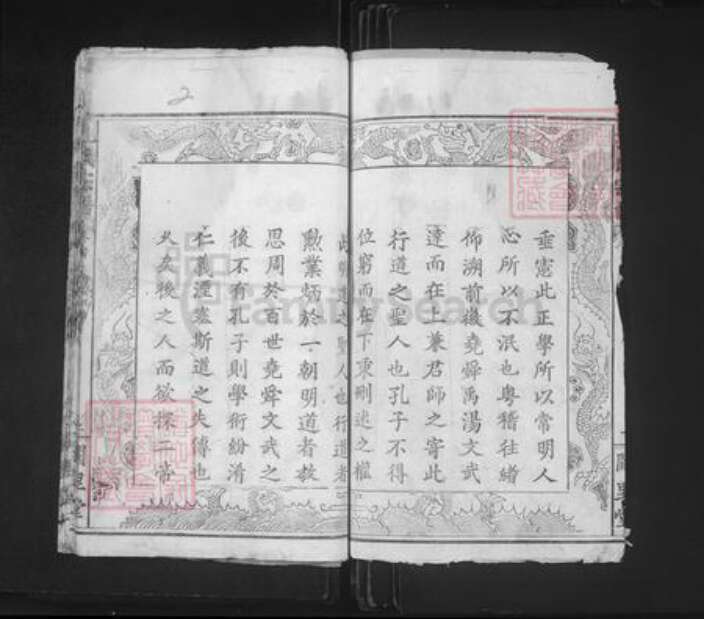 垂憲此正學所以常明人
心所以不泯也粵稽往緒
仰溯前徽堯舜禹湯文武
達而在上兼君師之寄此
行道之聖人也孔子不得
位窮而在下秉刪述之權
此明道之聖人也行道者
勲業炳於一朝明道者教
思周於百世堯舜文武之
後不有孔子則學術紛淆
仁義湮塞斯道之失傳也
久矣後之人而欲探二帝
2
FamilySearch